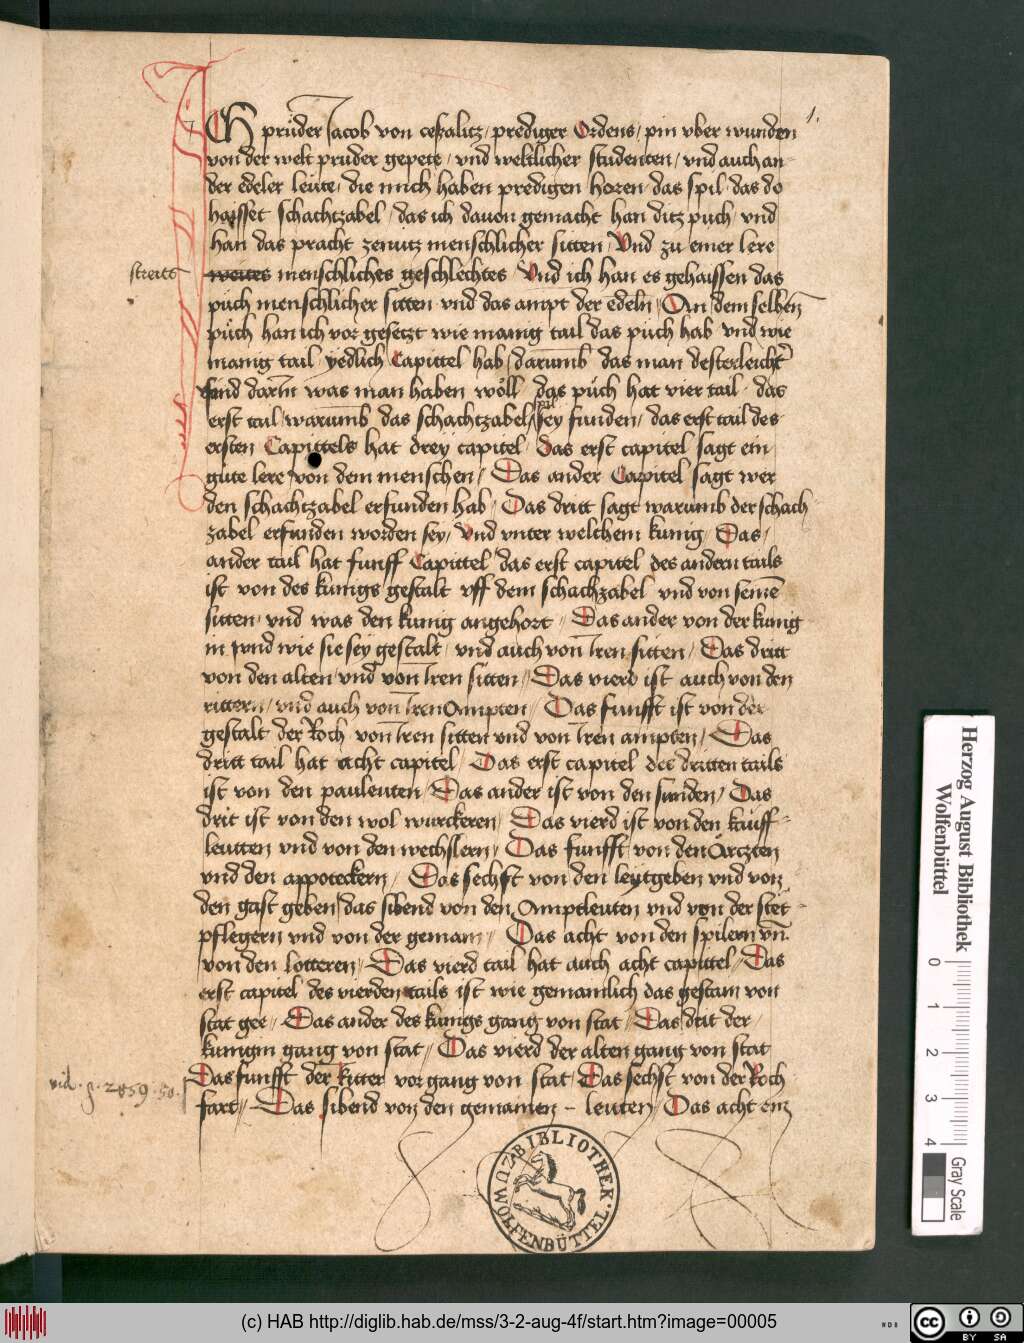 1.
ICh pruder Jacob von ceßalitz / prediger Ordens / pin vber wunden
von der welt pruder gepete / vnd weltlicher studenten / vnd auch an-
der edeler leute / die mich haben predigen horen / das spil / das do
haisset schachtzabel / das ich dauon gemacht han ditz puch / vnd
han das pracht zenutz menschlicher sitten / Vnd zu einer lere
streits weites menschliches geschlechtes Vnd ich han es gehaissen das
puch menschlicher sitten vnd das ampt der edeln / An dem selben
puch han ich vor gesetzt wie manig tail das puch hab vnd wie
manig tail yedlich Capittel hab / darumb das man dester leicht
find darin was man haben wöll das puch hat vier tail / das
erst tail / warumb das schachtzabel spil sey funden / das erst tail des
ersten Capittels hat drey capitel / Das erst capitel sagt ein
gute lere von dem menschen / Das ander Capitel sagt wer
den schachtzabel erfunden hab / Das dritt sagt warumb der schach
zabel erfunden worden sey / Vnd vnter welchem kunig / Das
ander tail hat funff Capittel das erst capitel des andern tails
ist von des kunigs gestalt vff dem schachzabel vnd von seine
sitten / vnd was den kunig angehort // Das ander von der kunig
in vnd wie sie sey gestalt / vnd auch von iren sitten / Das dritt
von den alten vnd von iren sitten // Das vierd ist auch von den
rittern / vnd auch von iren Ampten // Das funfft ist von der
gestalt der Roch von iren sitten vnd von iren ampten / Das
dritt tail hat acht capitel / Das erst capitel des dritten tails
ist von den pauleuten / Das ander ist von den smiden / Das
drit ist von den wol wurckeren / Das vierd ist von den kauff-
leutten vnd von den wechslern / Das funfft von den Arczten
vnd den appoteckern / Das sechst von den leutgeben vnd von
den gast geben / das sibend von den Amptleuten vnd von der stet-
pflegern vnd von der gemain // Das acht von den spilern vn
von den lotteren / Das vierd tail hat auch acht capittel / Das
erst capitel des vierden tails ist wie gemainlich das gestain von
stat gee / Das ander des kunigs gang von stat / Das drit der
kunigin gang von stat // Das vierd der alten gang von stat
Das funfft der Ritter vor gang von stat / Das sechst von der Roch
fart // Das sibend von den gemainen - leuten / Das acht ein
BIBLIOTHEK. ZU WOLFENBÜTTEL.
Herzog August Bibliothek
Wolfenbüttel
0 1 2 3 4
Gray Scale
(c) HAB http://diglib.hab.de/mss/3-2-aug-4f/start.htm?image=00005
WDB
cc BY SA